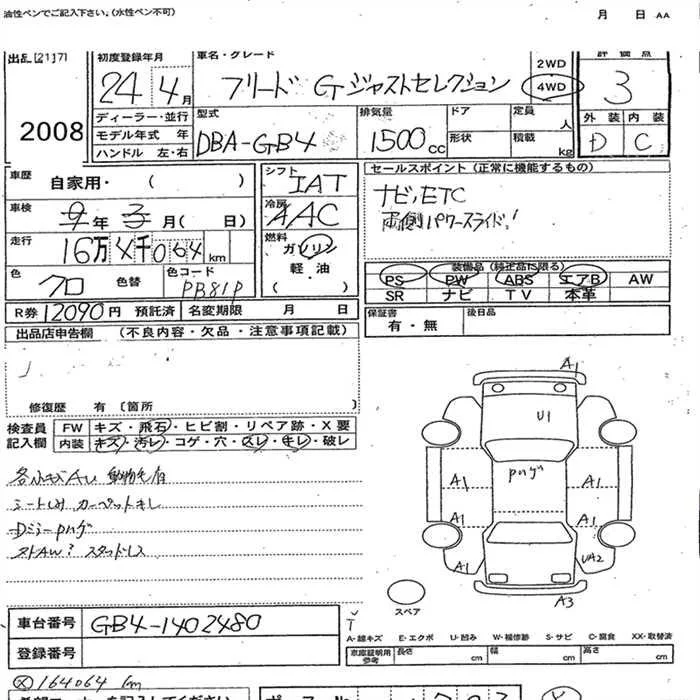 油性ペンでご記入下さい。(水性ペン不可) 月 日 AA
出品 [2117]
2008
初度登録年月
24年 4月
ディーラー・並行
モデル年式 年
ハンドル 左・右
車名・グレード
フリード Gジャストセレクション
2WD
4WD
評価点
3
型式
DBA-GB4
排気量
1500cc
ドア
形状
定員 人
積載 kg
外装 内装
D C
車歴 自家用・ ( )
車検 9年 3月 ( 日)
走行 16万4千064km
色 クロ 色替
色コード PB81P
シフト IAT
冷房 AAC
燃料 ガソリン
軽・油
( )
セールスポイント (正常に機能するもの)
ナビ,ETC
両側パワースライド!
装備品 (純正品に限る)
PS PW ABS エアB AW
SR ナビ TV 本革
R券 12090円 預託済 名変期限 月 日
保証書 有・無
後日品
出品店申告欄 (不良内容・欠品・注意事項記載)
修復歴 有 〔箇所 〕
検査員記入欄
FW キズ・飛石・ヒビ割・リペア跡・X要
内装 キズ・汚レ・コゲ・穴・スレ・キレ・破レ
各小キズAU 動物毛有
シートしみ カーペットキレ
Dミラーpハゲ
ストAW? スタッドレス
A1
U1
pハゲ
A1 A1
A1 A1
A1 UA2
A3
スペア
車台番号 GB4-1402480
登録番号
A-線キズ E-エクボ U-凹み W-補修跡 S-サビ C-腐食 XX-取替済
車庫証明用参考 長さ cm 幅 cm 高さ cm
164064 km